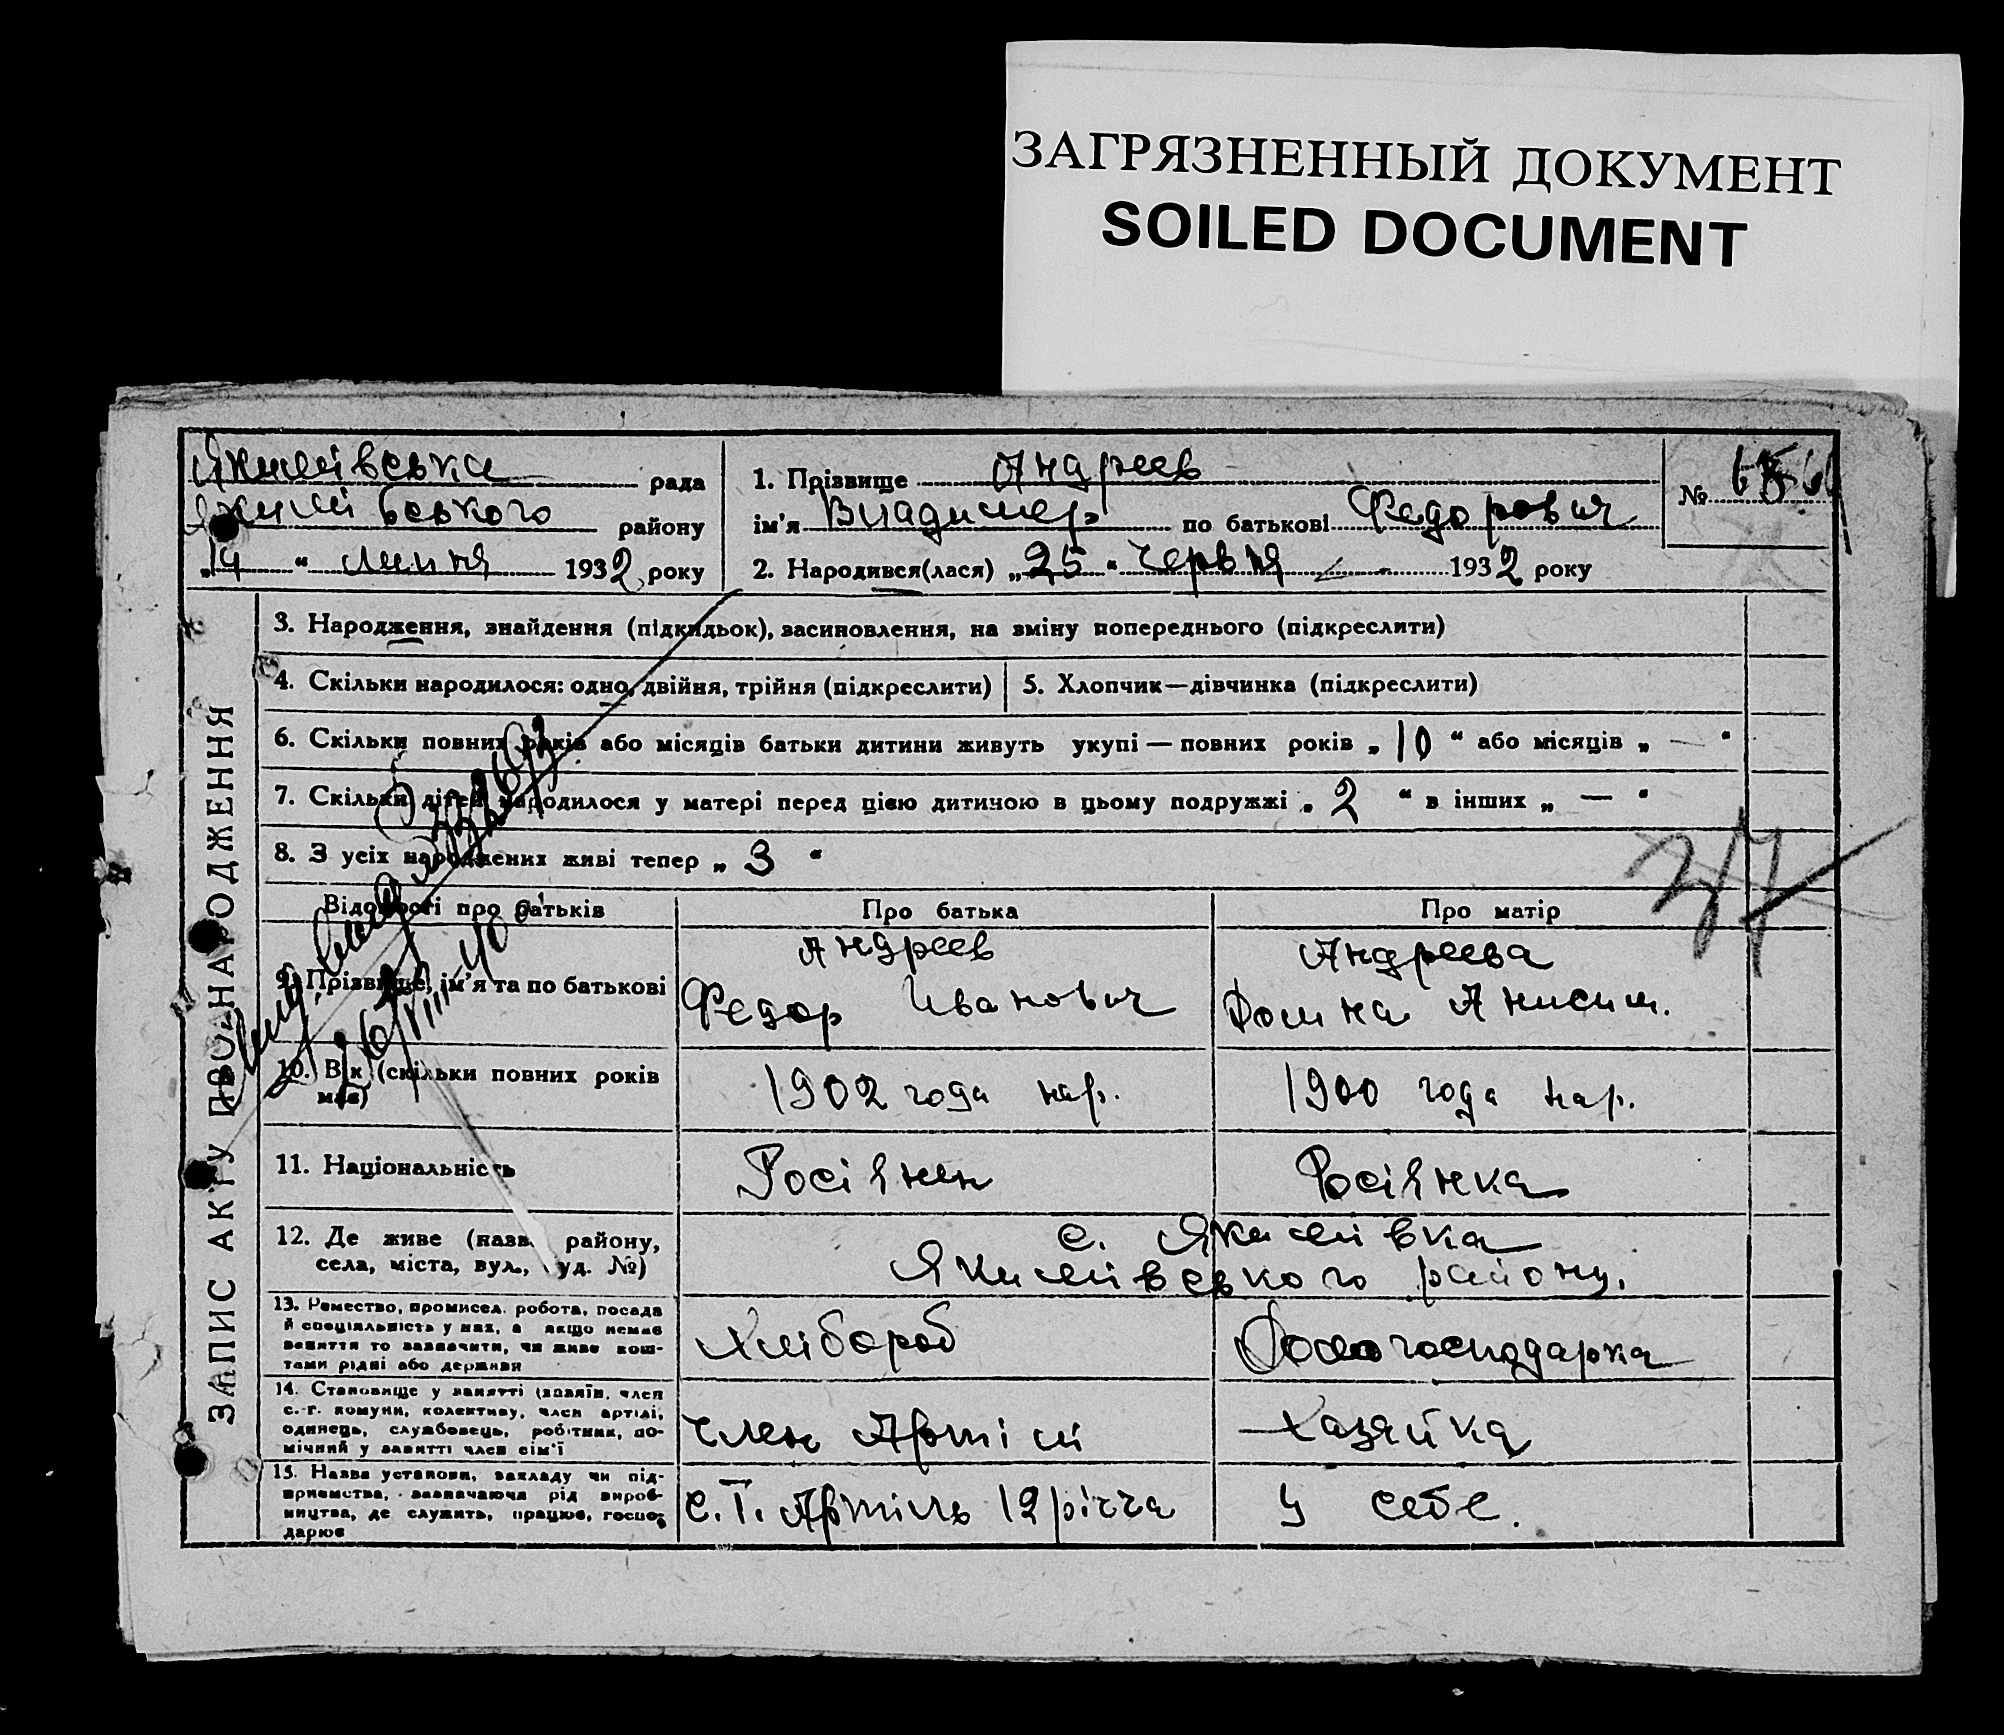 ЗАГРЯЗНЕННЫЙ ДОКУМЕНТ
SOILED DOCUMENT
Якимівська рада
Якимівського району
„14“ липня 1932 року
1. Прізвище Андреев
ім'я Владимер по батькові Федорович
№
2. Народився(лася) „25“ червня 1932 року
ЗАПИС АКТУ ПРО НАРОДЖЕННЯ
3. Народження, знайдення (підкидьок), засиновлення, на зміну попереднього (підкреслити)
4. Скільки народилося: одно, двійня, трійня (підкреслити)
5. Хлопчик—дівчинка (підкреслити)
6. Скільки повних років або місяців батьки дитини живуть укупі — повних років „10“ або місяців „—“
7. Скільки дітей народилося у матері перед цією дитиною в цьому подружжі „2“ в інших „—“
8. З усіх народжених живі тепер „3“
37
Відомості про батьків
Про батька
Про матір
9. Прізвище, ім'я та по батькові
Андреев
Федор Иванович
Андреева
Домна Анисим.
10. Вік (скільки повних років має)
1902 года нар.
1900 года нар.
11. Національність
Росіянен
Росіянка
12. Де живе (назва району,
села, міста, вул., буд. №)
с. Якимівка
Якимівського району.
13. Ремество, промисел, робота, посада
й спеціяльність у них, а якщо немає
заняття то зазначити, чи живе кош-
тами рідні або держави
Хлібороб
Домогосподарка
14. Становище у занятті (хазяїн, член
с.-г. комуни, колективу, член артілі,
одинець, службовець, робітник, по-
мічний у занятті член сім'ї
член Артілі
Хазяйка
15. Назва установи, закладу чи під-
приємства, зазначаючи рід вироб-
ництва, де служить, працює, госпо-
дарює
С.Г. Артіль 12 річча
У себе.